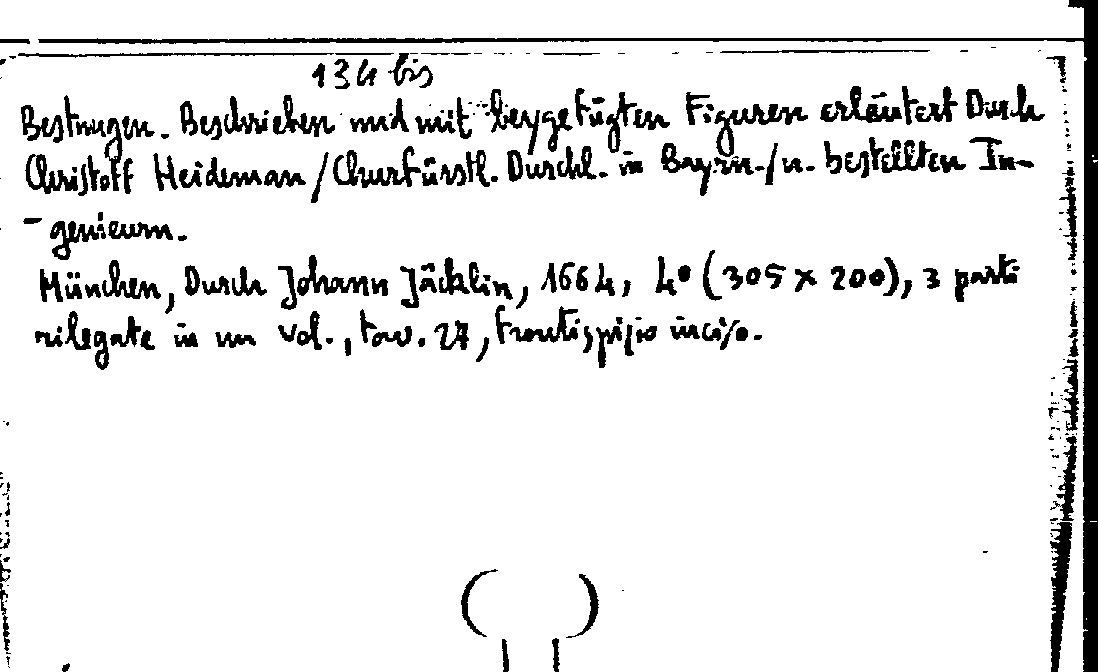 134 bis
Bestungen. Beschrieben und mit beygefügten Figuren erläutert Durch
Christoff Heideman/Churfürstl. Durchl. in Bayrn./n. bestellten In-
- genieurn.
München, Durch Johann Jäcklin, 1664, 4° (305 x 200), 3 parti
rilegate in un vol., tav. 27, frontispizio inciso.